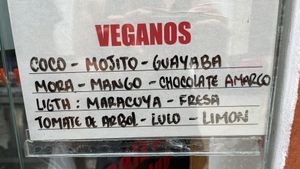 VEGANOS
COCO - MOJITO - GUAYABA
MORA - MANGO - CHOCOLATE AMARGO
LIGTH : MARACUYA - FRESA
TOMATE DE ARBOL - LULO - LIMON